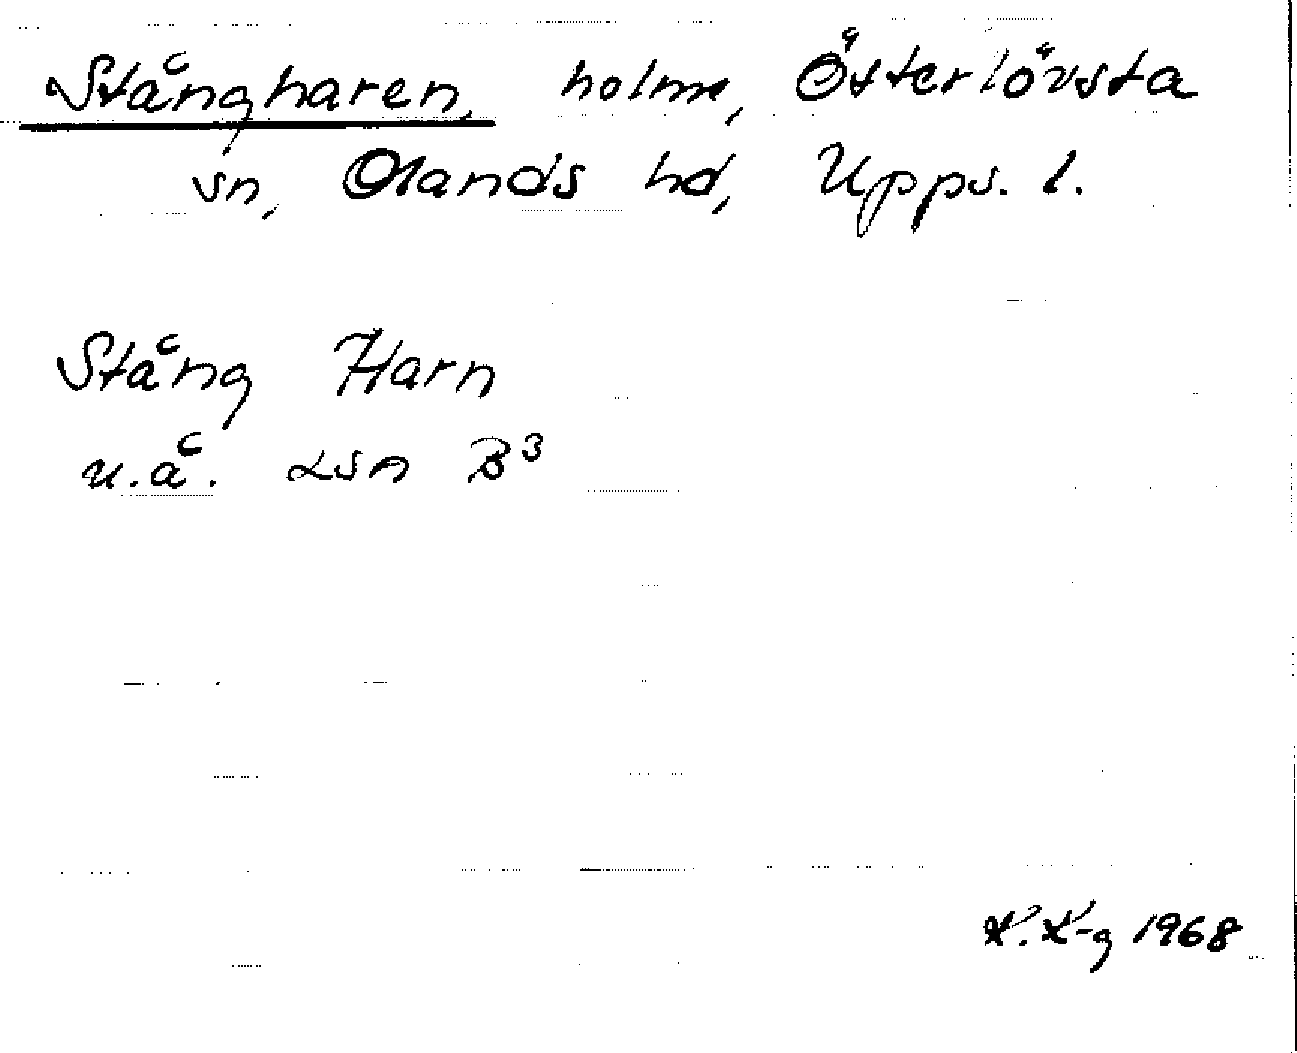 Stångharen, holme, Österlövsta
sn, Olands hd, Upps. l.
Stång Harn
u.å. LSA B3
K. K-g 1968